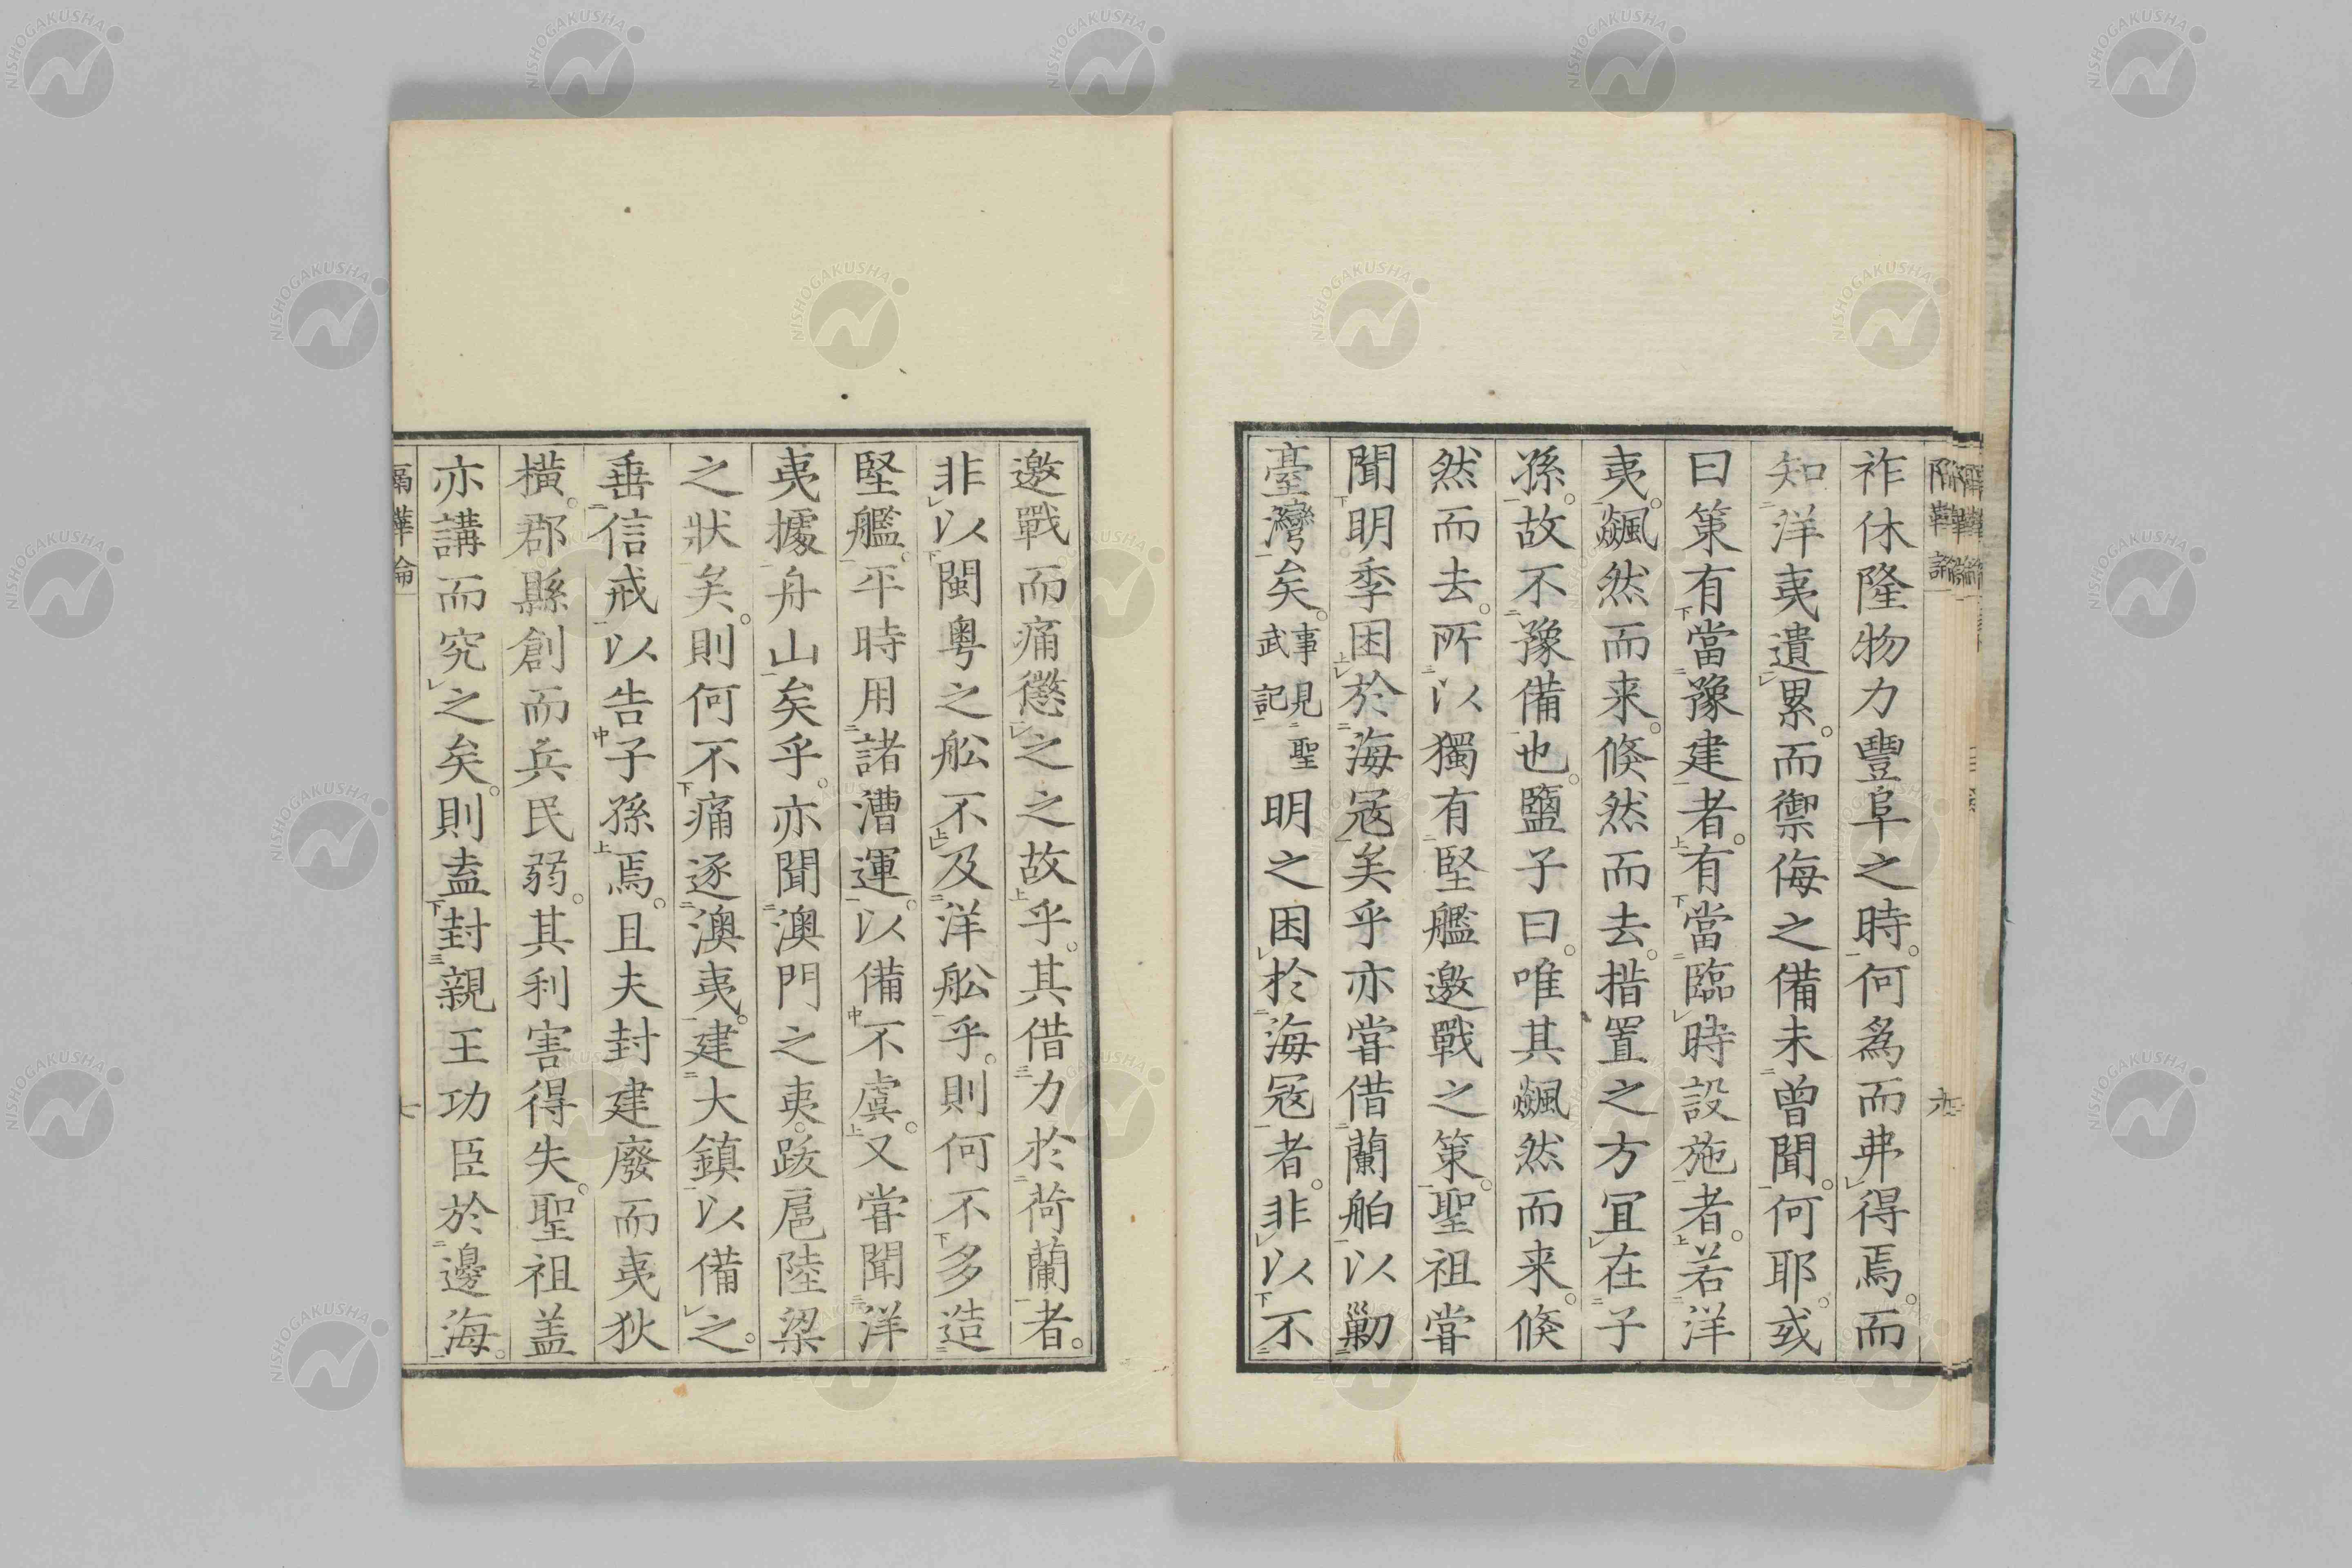 祚休隆物力豐阜之時。何為而弗得焉。而
知洋夷遺累。而禦侮之備未曾聞。何耶。或
曰策有當豫建者。有當臨時設施者。若洋
夷。飆然而来。倐然而去。措置之方冝在子
孫。故不豫備也。鹽子曰。唯其飆然而来。倐
然而去。所以獨有堅艦邀戰之策。聖祖嘗
聞明季困於海冦矣乎亦嘗借蘭舶以勦
臺灣矣。事見聖武記明之困於海冦者。非以不
邀戰而痛懲之之故乎。其借力於荷蘭者。
非以閩粵之舩不及洋舩乎。則何不多造
堅艦。平時用諸漕運。以備不虞。又嘗聞洋
夷據舟山矣乎。亦聞澳門之夷。跋扈陸梁
之狀矣。則何不痛逐澳夷。建大鎮以備之。
垂信戒以告子孫焉。且夫封建廢而夷狄
橫。郡縣創而兵民弱。其利害得失。聖祖盖
亦講而究之矣。則盍封親王功臣於邊海。
NISHOGAKUSHA